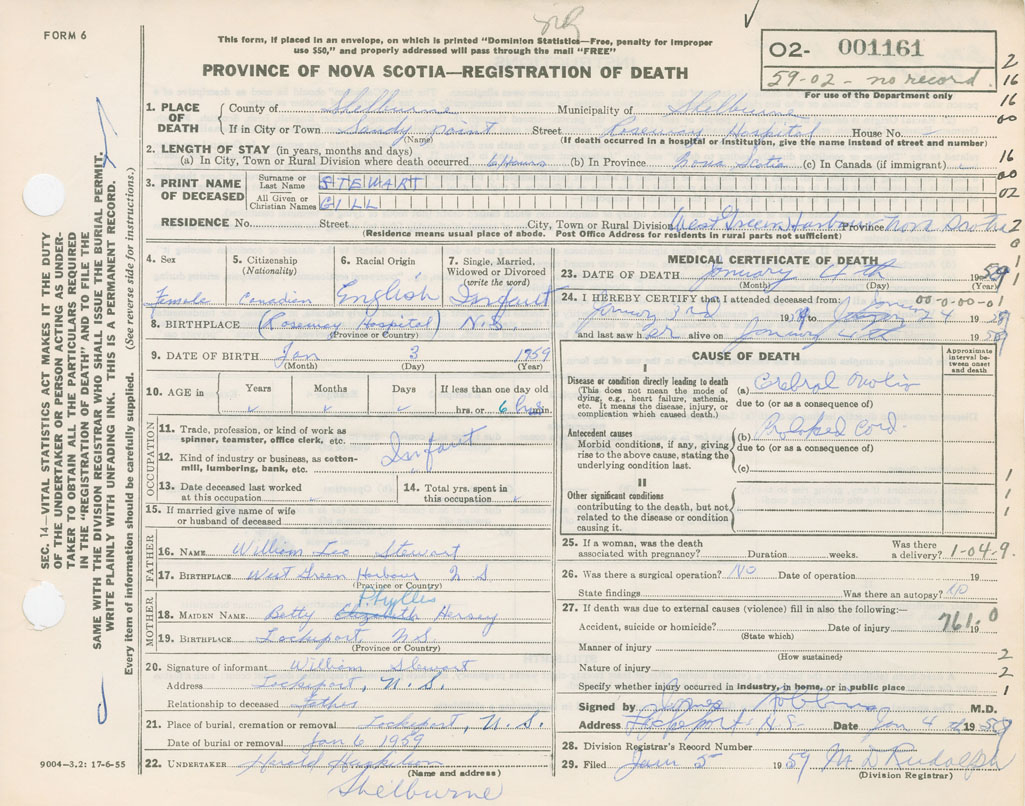 FORM 6
This form, if placed in an envelope, on which is printed "Dominion Statistics—Free, penalty for improper
use $50," and properly addressed will pass through the mail "FREE"
PROVINCE OF NOVA SCOTIA—REGISTRATION OF DEATH
O2- 001161
59-02 - no record
For use of the Department only
1. PLACE OF DEATH County of Shelburne Municipality of Shelburne
If in City or Town Sandy point Street Roseway Hospital House No. -
(Name) (If death occurred in a hospital or institution, give the name instead of street and number)
2. LENGTH OF STAY (in years, months and days)
(a) In City, Town or Rural Division where death occurred. 6 Hours (b) In Province Nova Scotia (c) In Canada (if immigrant)
3. PRINT NAME OF DECEASED Surname or Last Name STEWART
All Given or Christian Names GILL
RESIDENCE No. Street City, Town or Rural Division West Green Harbour Province Nova Scotia
(Residence means usual place of abode. Post Office Address for residents in rural parts not sufficient)
4. Sex Female
5. Citizenship (Nationality) Canadian
6. Racial Origin English
7. Single, Married, Widowed or Divorced (write the word) Infant
8. BIRTHPLACE (Roseway Hospital) N.S.
(Province or Country)
9. DATE OF BIRTH Jan 3 1959
(Month) (Day) (Year)
10. AGE in Years Months Days If less than one day old
hrs. or 6 hrs min.
OCCUPATION
11. Trade, profession, or kind of work as spinner, teamster, office clerk, etc.
12. Kind of industry or business, as cotton-mill, lumbering, bank, etc. Infant
13. Date deceased last worked at this occupation
14. Total yrs. spent in this occupation
15. If married give name of wife or husband of deceased
FATHER
16. NAME William Leo Stewart
17. BIRTHPLACE West Green Harbour N S
(Province or Country)
MOTHER
Phyllis
18. MAIDEN NAME Betty Elizabeth Hersey
19. BIRTHPLACE Lockeport N.S.
(Province or Country)
20. Signature of informant William Stewart
Address Lockeport, N.S.
Relationship to deceased Father
21. Place of burial, cremation or removal Lockeport, N.S.
Date of burial or removal Jan 6 1959
22. UNDERTAKER Harold
(Name and address)
Shelburne
9004—3.2: 17-6-55
MEDICAL CERTIFICATE OF DEATH
23. DATE OF DEATH January 4th 1959
(Month) (Day) (Year)
24. I HEREBY CERTIFY that I attended deceased from:
00-0-00-01
January 3rd 1959 to 4 1959
and last saw her alive on January 4th 1959
CAUSE OF DEATH
Approximate interval between onset and death
I
Disease or condition directly leading to death
(This does not mean the mode of dying, e.g., heart failure, asthenia, etc. It means the disease, injury, or complication which caused death.)
(a)
due to (or as a consequence of)
Antecedent causes
Morbid conditions, if any, giving rise to the above cause, stating the underlying condition last.
(b) Prolapsed Cord.
due to (or as a consequence of)
(c)
II
Other significant conditions
contributing to the death, but not related to the disease or condition causing it.
25. If a woman, was the death associated with pregnancy? Duration weeks. Was there a delivery? 1-04-9.
26. Was there a surgical operation? NO Date of operation 19
State findings Was there an autopsy? NO
27. If death was due to external causes (violence) fill in also the following:—
Accident, suicide or homicide? Date of injury 19
(State which)
761.0
Manner of injury
(How sustained)
Nature of injury
Specify whether injury occurred in industry, in home, or in public place
Signed by M.D.
Address Lockeport N.S. Date Jan 4 th 1959
28. Division Registrar's Record Number
29. Filed Jan 5 1959 M D Rudolph
(Division Registrar)
SEC. 14—VITAL STATISTICS ACT MAKES IT THE DUTY
OF THE UNDERTAKER OR PERSON ACTING AS UNDER-
TAKER TO OBTAIN ALL THE PARTICULARS REQUIRED
IN THE "REGISTRATION OF DEATH" AND FILE THE
SAME WITH THE DIVISION REGISTRAR WHO SHALL ISSUE THE BURIAL PERMIT.
WRITE PLAINLY WITH UNFADING INK. THIS IS A PERMANENT RECORD.
Every item of information should be carefully supplied. (See reverse side for instructions.)
2
16
16
00
16
00
02
2
0
1
1
1
1
1
2
2
1